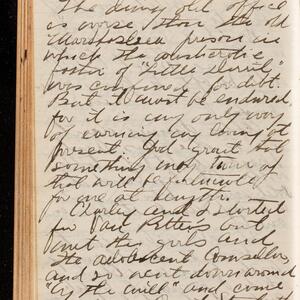 The dingy old office
is worse than the old
Marshalsea prison in
which the
father of "Little Dorrit"
was confined for debt.
But it must be endured
for it is my only way
of earning my living at
present. God grant but
something may turn up
that will be
for me at length.
Charley and I started
for but
met the girls and
the adolescent Counsellor
and so went down around
"by the mill" and come